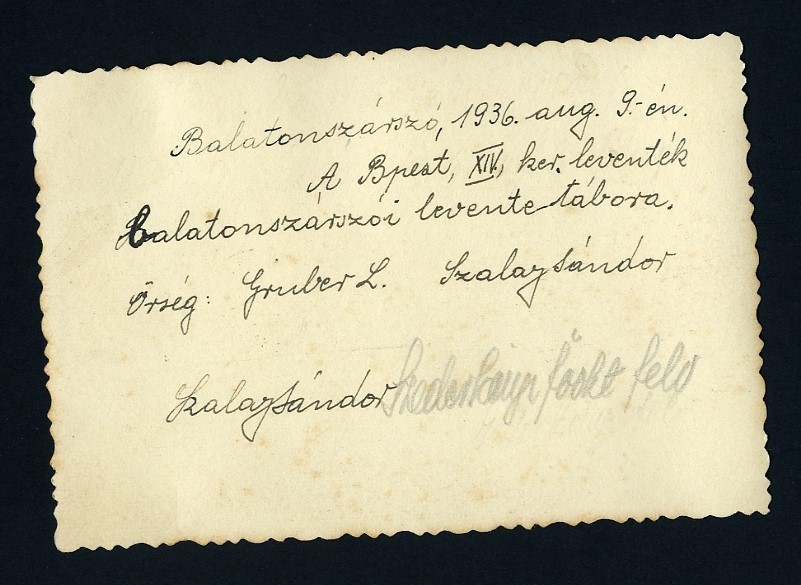 Balatonszárszó, 1936. aug. 9.-én.
A Bpest, XIV, ker. leventék
balatonszárszói levente tábora.
Őrség: Gruber L. Szalay Sándor
Szalay Sándor felv